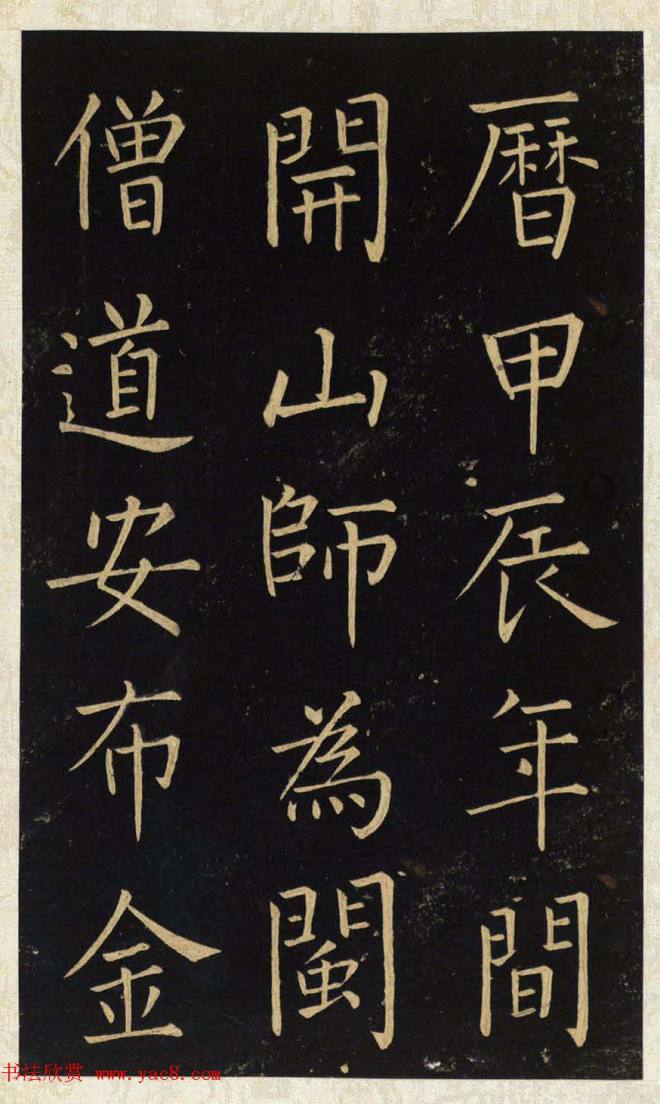 暦甲辰年間
開山師為閩
僧道安布金
书法欣赏 www.yac8.com